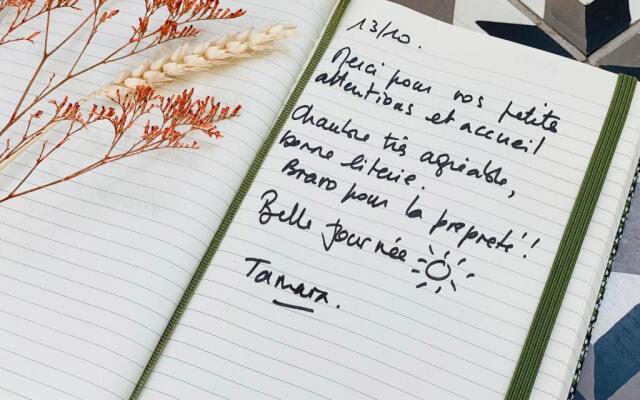 13/10.
Merci pour vos petite
attentions et accueil
Chambre très agréable,
bonne literie.
Bravo pour la propreté!!
Belle journée
Tamara.